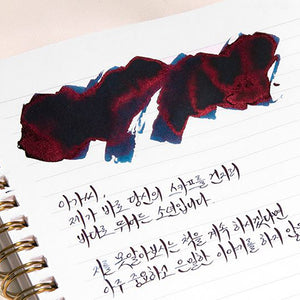 아가씨,
제가 바로 당신의 스카프를 건지러
바다로 뛰어든 소년입니다.
저를 못 알아보시는 척을 계속 하시겠다면
아주 중요하고 은밀한 이야기를 하게